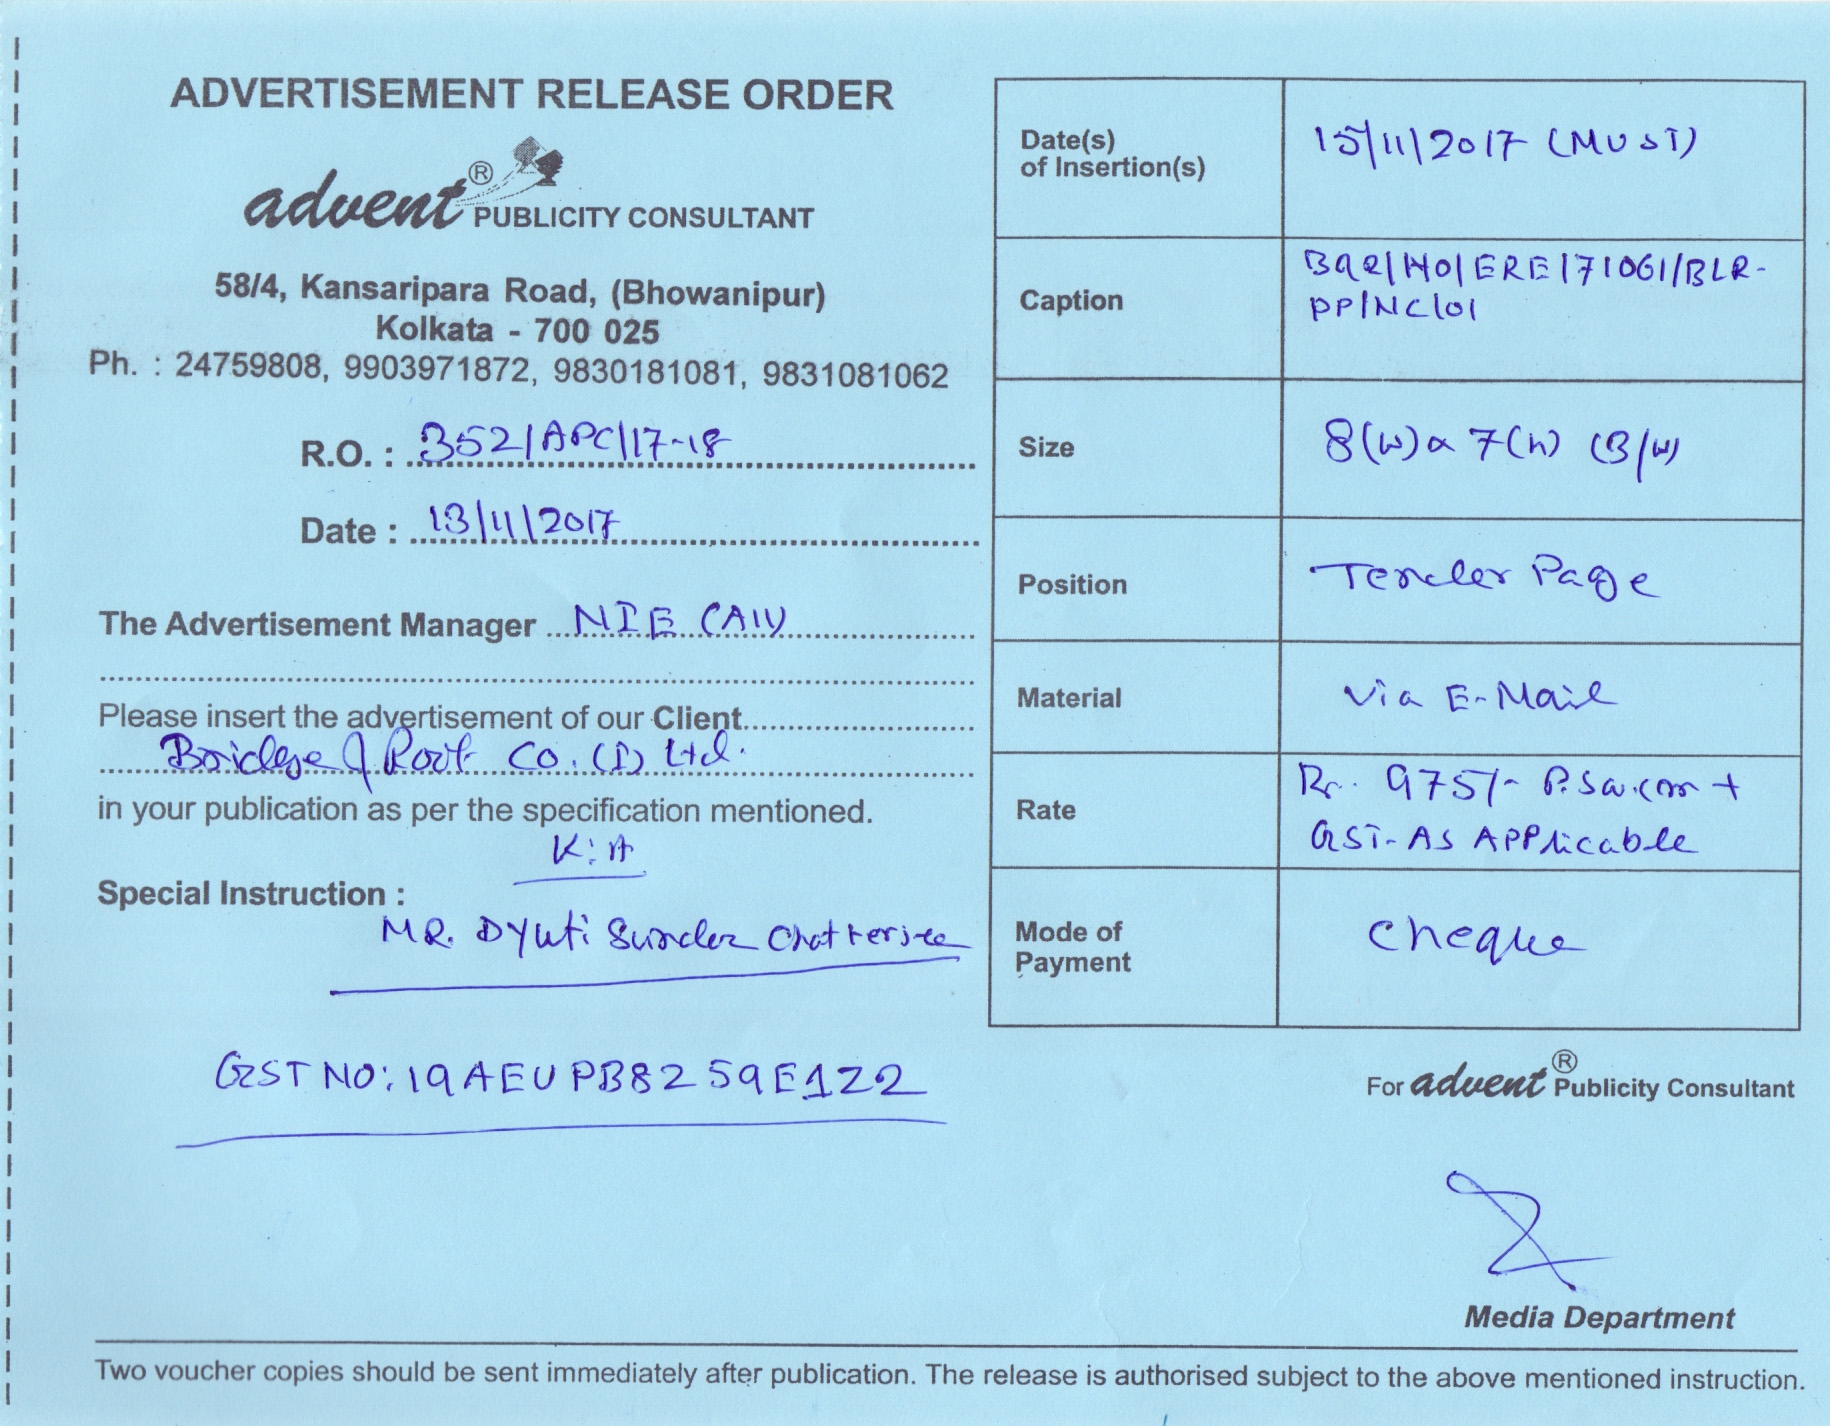 ADVERTISEMENT RELEASE ORDER
advent ® PUBLICITY CONSULTANT
58/4, Kansaripara Road, (Bhowanipur)
Kolkata - 700 025
Ph. : 24759808, 9903971872, 9830181081, 9831081062
R.O. : 352/APC/17-18
Date : 13/11/2017
The Advertisement Manager NIE (All)
Please insert the advertisement of our Client
Bridge & Roof Co. (I) Ltd.
in your publication as per the specification mentioned.
K: A
Special Instruction :
MR. Dyuti Sunder Chatterjee
GST NO: 19AEUPB8259E1Z2
Date(s)
of Insertion(s)
15/11/2017 (MUST)
Caption
B&R/HO/ERE/71061/BLR-
PP/NC/01
Size
8(w) x 7(h) (B/W)
Position
Tender Page
Material
Via E-Mail
Rate
Rs. 975/- P.Sq.cm +
GST- AS APPlicable
Mode of
Payment
Cheque
For advent ® Publicity Consultant
Media Department
Two voucher copies should be sent immediately after publication. The release is authorised subject to the above mentioned instruction.